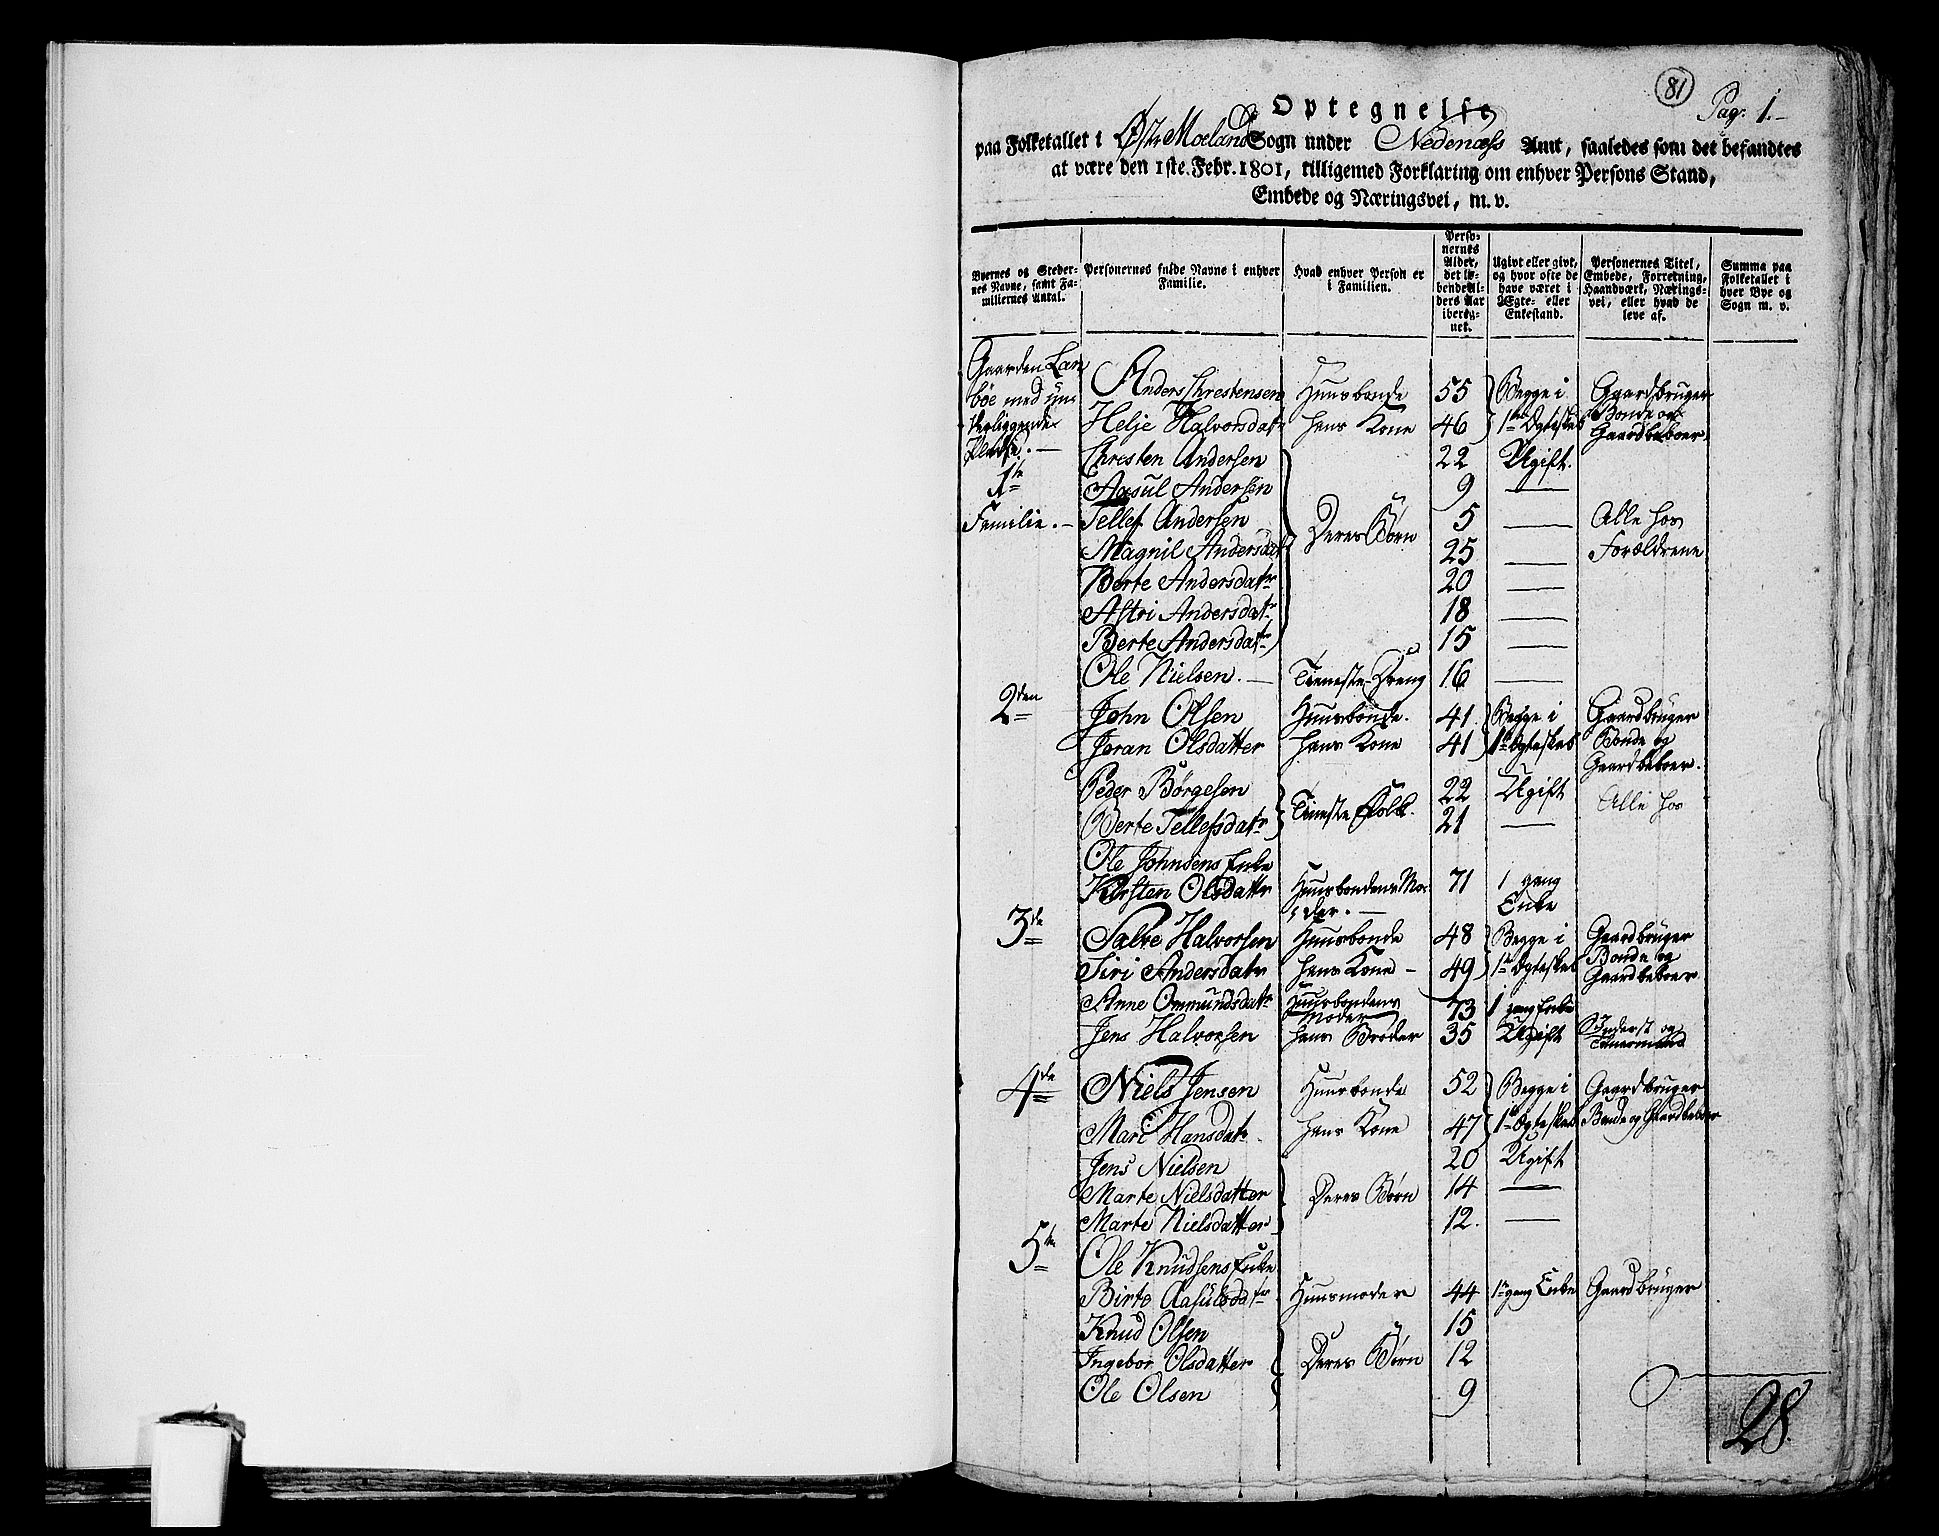 81
Pag: 1.-
Optegnelse
paa Folketallet i Østr Moeland Sogn under Nedenæss Amt, saaledes som det befandtes
at være den 1ste. Febr. 1801, tilligemed Forklaring om enhver Persons Stand,
Embede og Næringsvei, m. v.
Byernes og Steder-
nes Navne, samt Fa-
miliernes Antal.
Personernes fulde Navne i enhver
Familie.
Hvad enhver Person er
i Familien.
Perso-
nernes
Alder,
det lø-
bende Al-
ders Aar
ibereg-
net.
Ugivt eller givt,
og hvor ofte de
have været i
Ægte- eller
Enkestand.
Personernes Titel,
Embede, Forretning,
Haandværk, Nærings-
vei, eller hvad de
leve af.
Summa paa
Folketallet i
hver Bye og
Sogn m. v.
Gaarden Lan
böe med un
derliggende
Pladse. —
1te
Familie. —
Anders Chrestensen Huusbonde 55 Begge i Gaardbruger
Helje Halvorsdatr hans Kone 46 1te Egteskab Bonde og
Gaardbeboer
Chresten Andersen 22 Ugift.
Aasul Andersen 9 —
Tellef Andersen Deres Børn 5 — Alle hos
Magnil Andersdatr 25 — Forældrene
Berte Andersdatr 20 —
Astri Andersdatr 18 —
Berte Andersdatr 15 —
Ole Nielsen. — Tieneste-Dreng 16 —
2den John Olsen Huusbonde. 41. Begge i Gaardbruger
Joran Olsdatter hans Kone 41 1te Egteskab Bonde og
Gaardbeboer.
Peder Börgesen Tieneste Folk. 22 Ugift Alle hos
Berte Tellefsdatr 21 —
Ole Johnsens Enke
Kirsten Olsdattr Huusbondens Mo- 71 1 gang
der. — Enke
3de Salve Halvorsen Huusbonde 48 Begge i Gaardbruger
Siri Andersdatr hans Kone - 49 1te Egteskab Bonde og
Gaardbeboer
Anne Ommundsdatr Huusbondens 73 1 gang Enke
Moder
Jens Halvorsen hans Broder 35 Ugift Inderst og
4de Niels Jensen Huusbonde 52 Begge i Gaardbruger
Mari Hansdatr hans Kone 47 1te Egteskab Bonde og Gaardbeboer
Jens Nielsen 20 Ugift
Marte Nielsdatter Deres Børn 14 —
Marte Nielsdatter 12. —
5te Ole Knudsens Enke
Birte Aasulsdatr Huusmoder 44 1te gang Enke Gaardbruger
Knud Olsen 15
Ingebor Olsdatter Deres Børn 12
Ole Olsen 9
28.